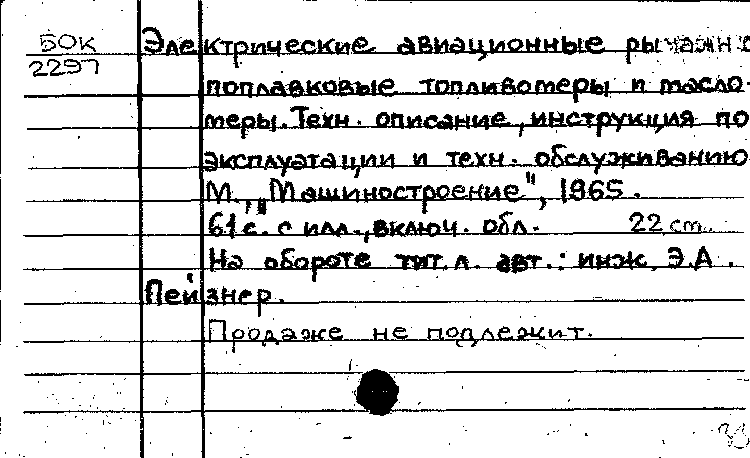 БОК Электрические авиационные рычажно
2297 поплавковые топливомеры и масло-
меры. Техн. описание, инструкция по
эксплуатации и техн. обслуживанию
М., „Машиностроение", 1965.
61 с. с илл., включ. обл. 22 cm.
На обороте тит. л. авт.: инж. Э.А.
Пейзнер.
Продаже не подлежит.